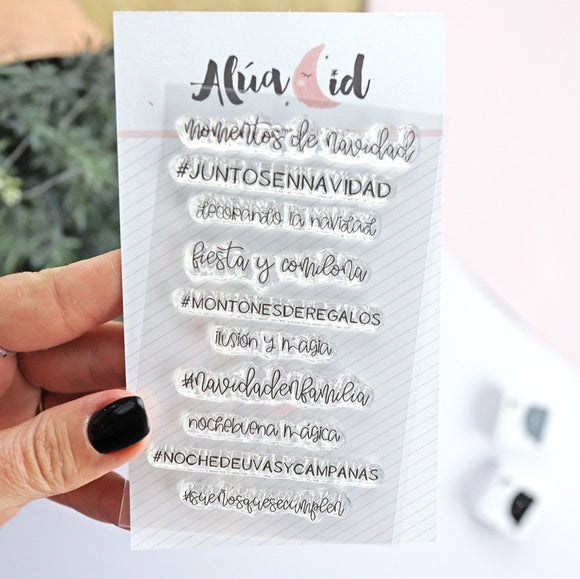 Alúa Cid
momentos de navidad
#JUNTOSENNAVIDAD
decorando la navidad
fiesta y comilona
#MONTONESDEREGALOS
ilusión y magia
#navidadenfamilia
nochebuena mágica
#NOCHEDEUVASYCAMPANAS
#sueñosquesecumplen